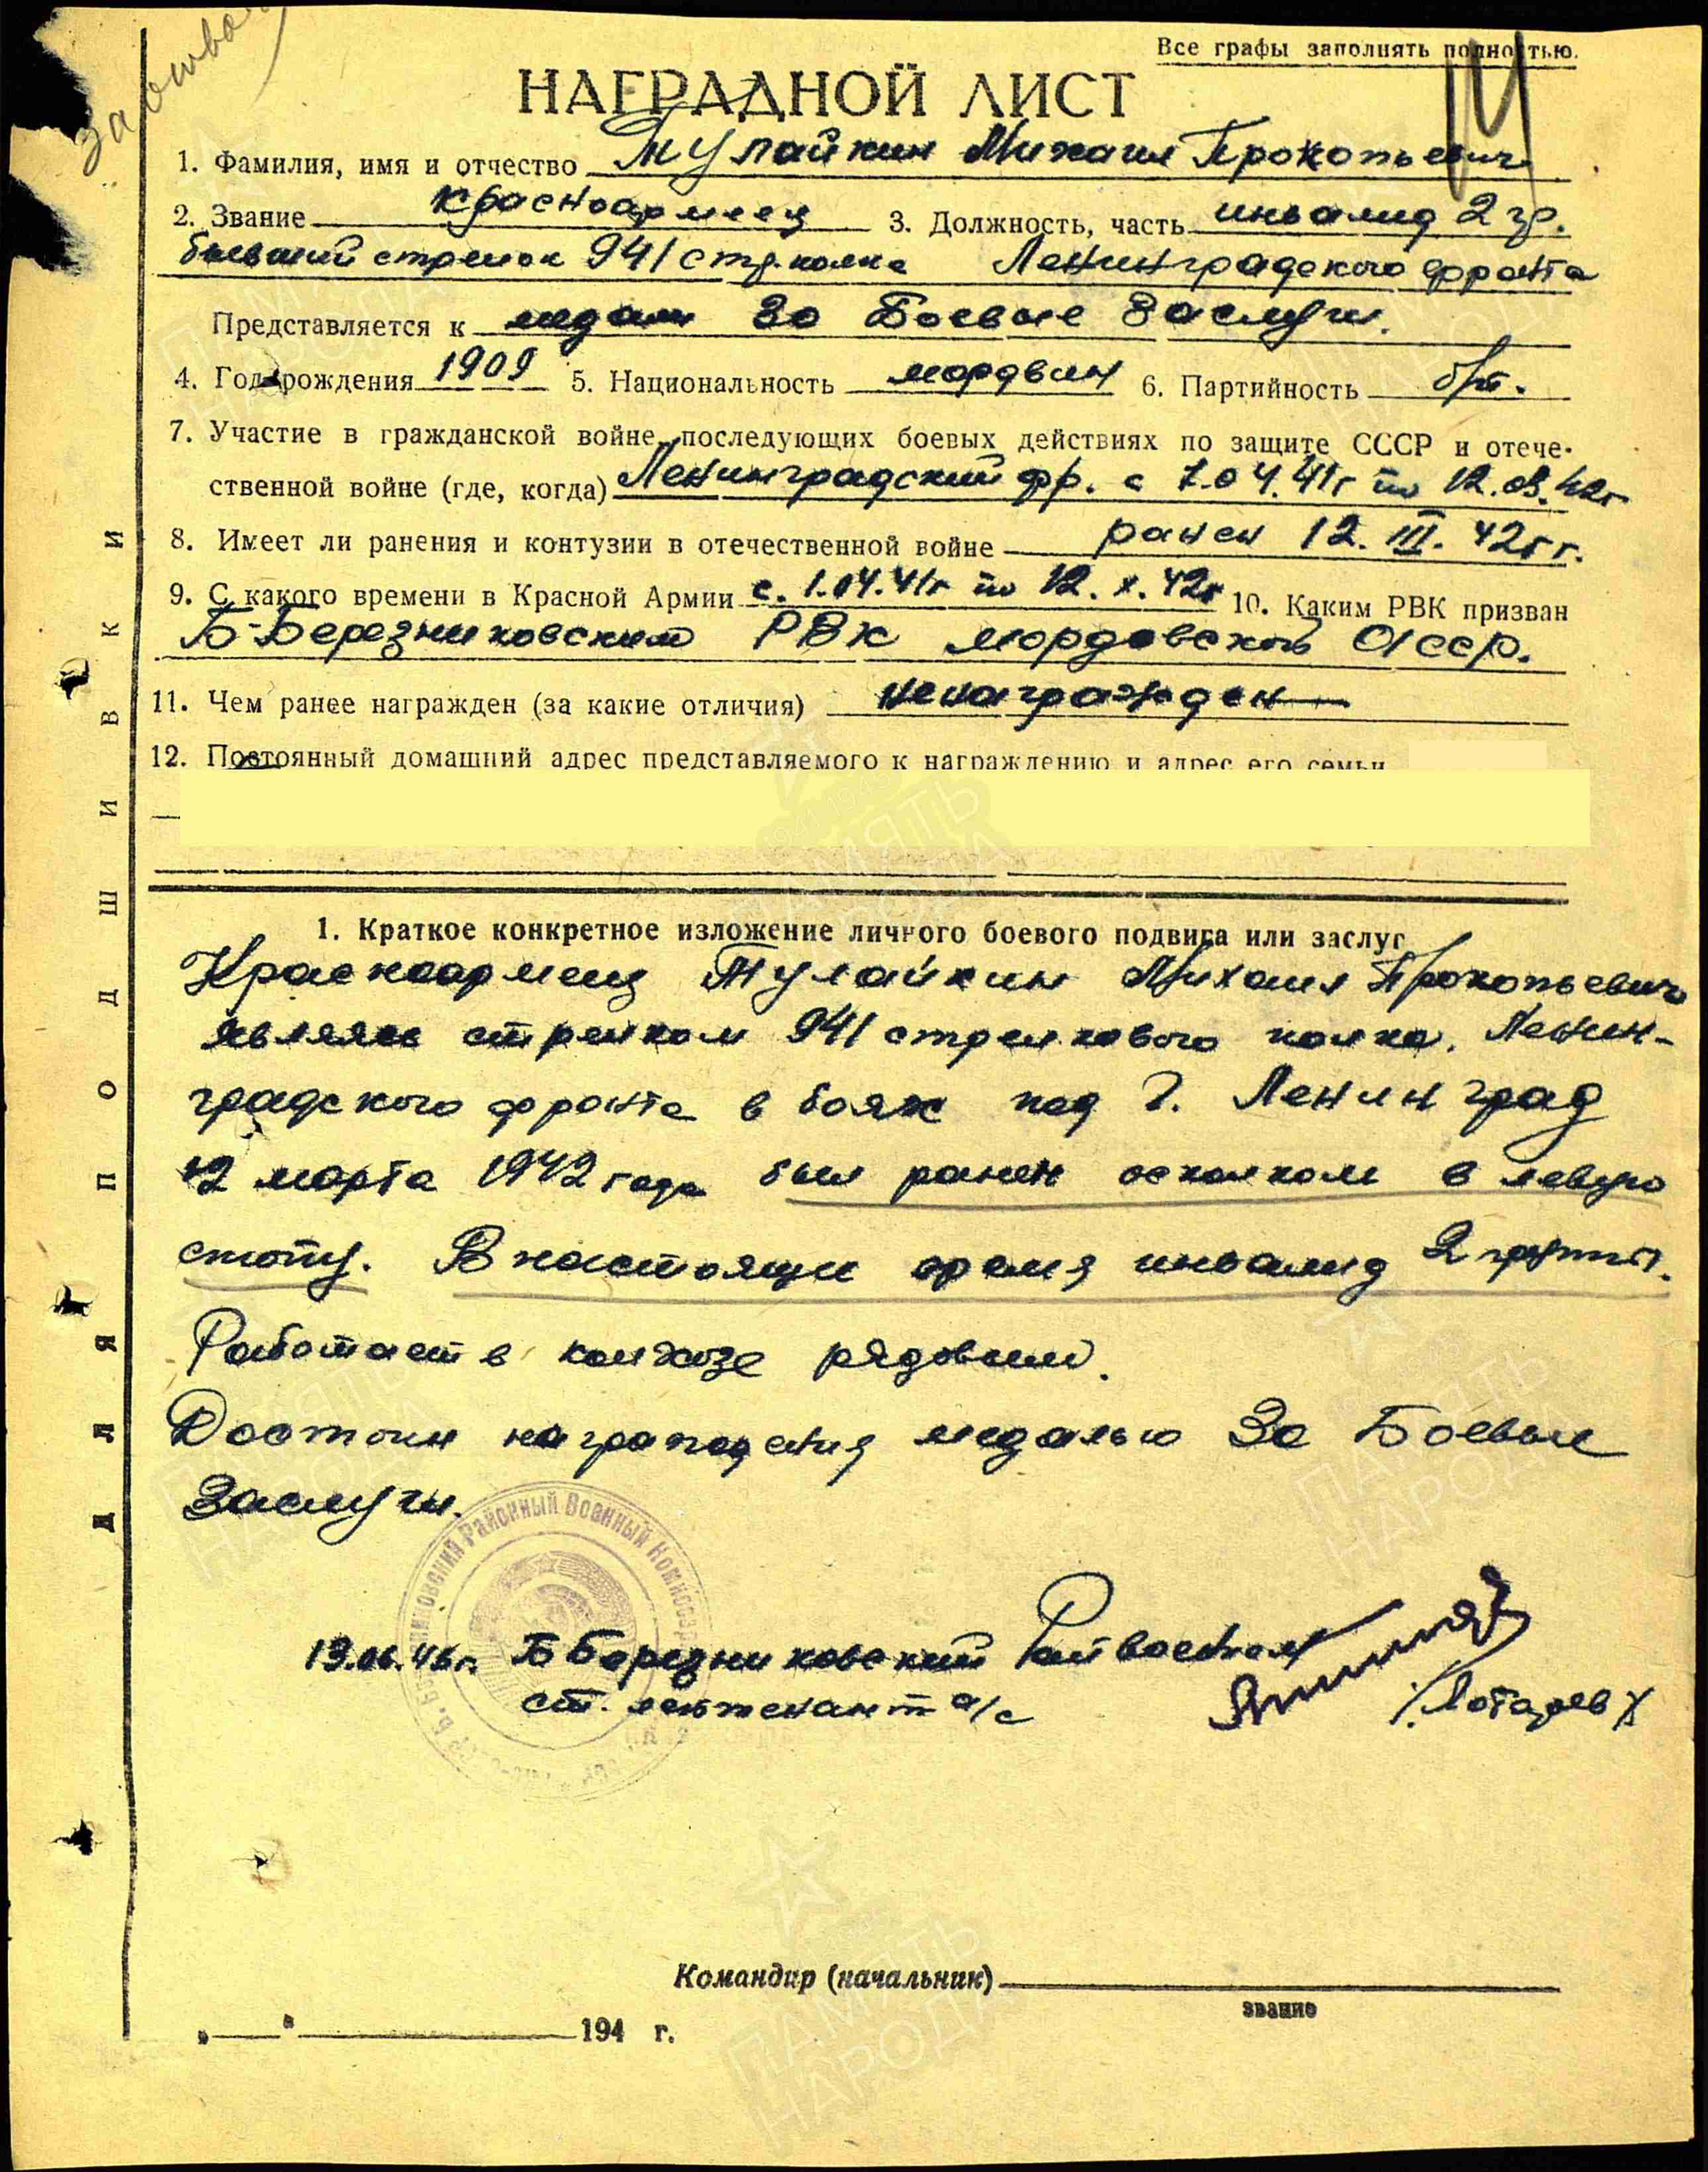 за отвагу
Все графы заполнять полностью.
НАГРАДНОЙ ЛИСТ
1. Фамилия, имя и отчество Тулайкин Михаил Прокопьевич
2. Звание красноармеец 3. Должность, часть инвалид 2 гр.
бывший стрелок 941 стр. полка Ленинградского фронта
Представляется к медали За Боевые Заслуги.
4. Год рождения 1909 5. Национальность мордвин 6. Партийность б/п.
7. Участие в гражданской войне, последующих боевых действиях по защите СССР и отече-
ственной войне (где, когда) Ленинградский фр. с 1.04.41г по 12.03.42г
8. Имеет ли ранения и контузии в отечественной войне ранен 12.III.42 г.
9. С какого времени в Красной Армии с. 1.04.41г по 12.X.42г 10. Каким РВК призван
Б-Березниковским РВК мордовской АССР.
11. Чем ранее награжден (за какие отличия) ненагражден
12. Постоянный домашний адрес представляемого к награждению и адрес его семьи
1. Краткое конкретное изложение личного боевого подвига или заслуг
Красноармеец Тулайкин Михаил Прокопьевич
являясь стрелком 941 стрелкового полка. Ленин-
градского фронта в боях под г. Ленинград
12 марта 1942 года был ранен осколком в левую
стопу. В настоящи время инвалид 2 группы.
Работает в колхозе рядовым.
Достоин награждения медалью За Боевые
Заслуги.
19.06.46г. Б Березниковский Райвоенком
ст. лейтенант а/с
Районный Военный Комиссариат
ДЛЯ ПОДШИВКИ
Командир (начальник)
звание
„ " 194 г.
ПАМЯТЬ НАРОДА